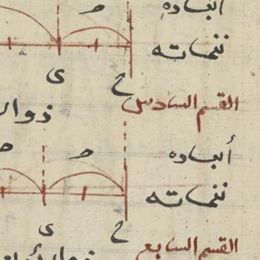 أبعاده
نغماته
ح ى
القسم السادس
أبعاده
نغماته
ح ى
القسم السابع